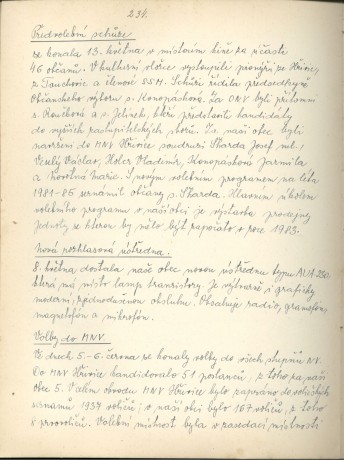 234.
Předvolební schůze
se konala 13. května v místním kině za účasti
46 občanů. V kulturní vložce vystoupili pionýři ze Hřivic,
z Touchovic a členové SSM. Schůzi řídila předsedkyně
Občanského výboru s. Konopásková, za ONV byli přítomni
s. Roučková a s. Jelínek, kteří představili kandidáty
do vyšších zastupitelských sborů. Za naši obec byli
navrženi do MNV Hřivice soudruzi Škarda Josef, ml.,
Veselý Václav, Holer Vladimír, Konopásková Jarmila
a Marie. S novým volebním programem na léta
1981-85 seznámil občany s. Škarda. Hlavním úkolem
volebního programu v naší obci je výstavba prodejny
Jednoty se kterou by mělo být započato v roce 1983.
Nová rozhlasová ústředna.
8. května dostala naše obec novou ústřednu typu
která má místo lamp tranzistory. Je výtvarně i graficky
moderní, zjednodušenou obsluhu. Obsahuje radio, gramofon,
magnetofon a mikrofon.
Volby do MNV
Ve dnech 5.-6. června se konaly volby do všech stupňů NV.
Do MNV Hřivice kandidovalo 51 poslanců, z toho za naši
obec 5. V celém obvodu MNV Hřivice bylo zapsáno do voličských
seznamů 1937 voličů; v naší obci bylo 167 voličů, z toho
prvovoličů. Volební místnost byla v zasedací místnosti